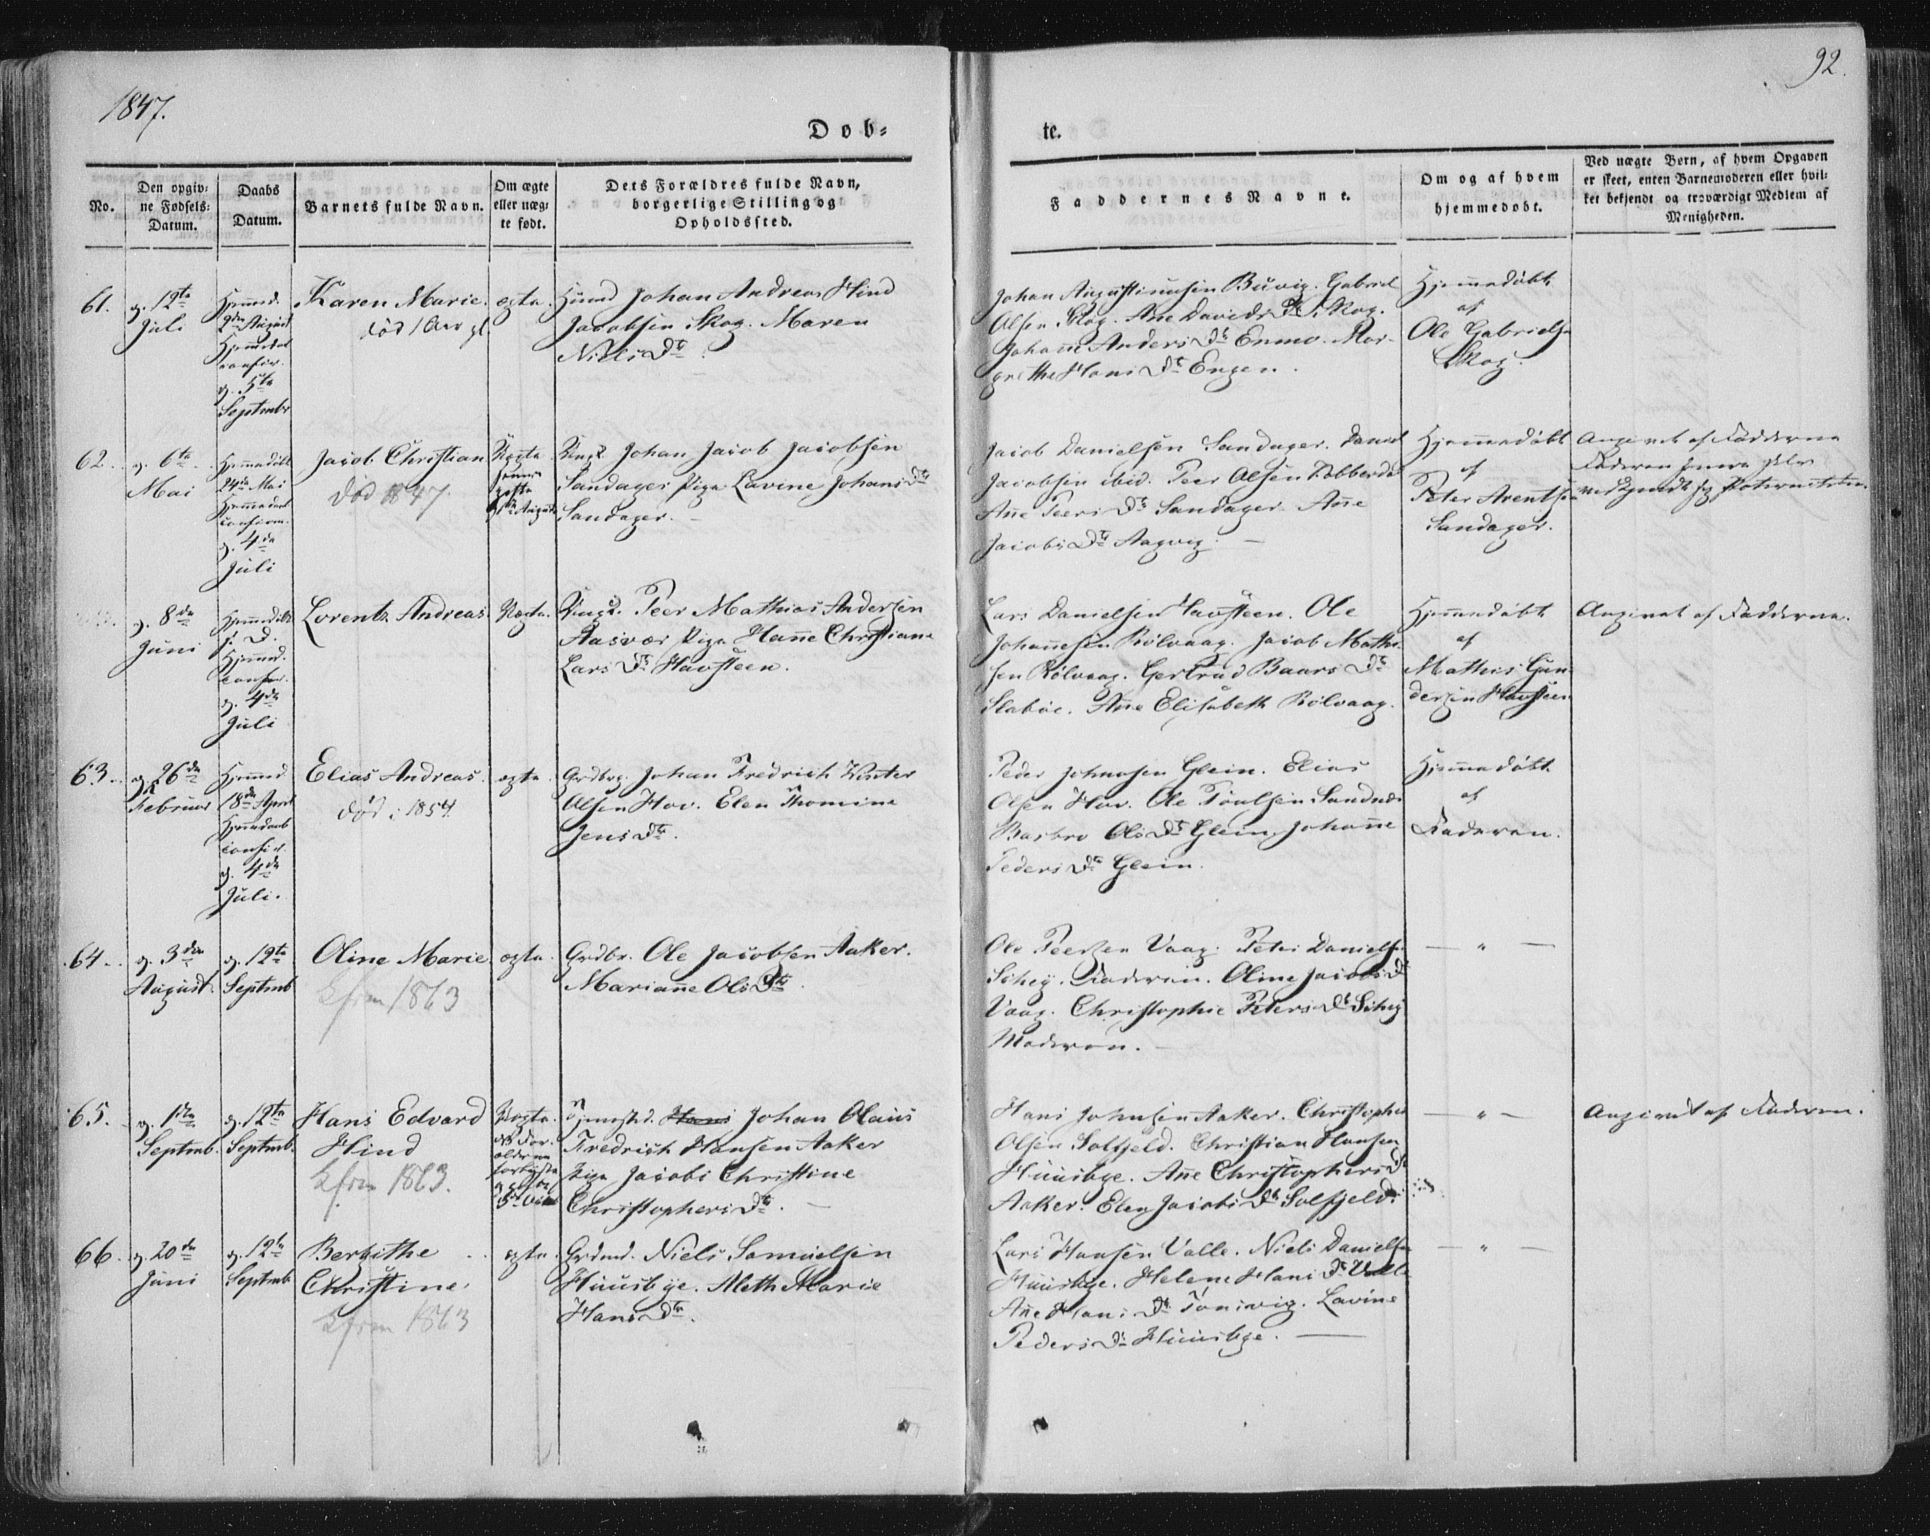 1847.
92.
Døb=
te.
No.
Den opgiv=
ne Fødsels=
Datum.
Daabs
Datum.
Barnets fulde Navn.
Om ægte
eller uæg=
te født.
Dets Forældres fulde Navn,
borgerlige Stilling og
Opholdssted.
Faddernes Navne.
Om og af hvem
hjemmedøbt.
Ved uægte Børn, af hvem Opgaven
er skeet, enten Barnemoderen eller hvil=
ket bekjendt og troværdigt Medlem af
Menigheden.
61.
d. 12te
Juli
Hjemmed.
2den August
Hjemmedaab
confir.
d. 5te
Septembr
Karen Marie.
død 1 Aar gl.
ægte.
Huusmd Johan Andreas Hind
Jacobsen Skog. Maren
Niels Dtr.
Johan Augustinusen Buvig. Gabriel
Olsen Skog. Ane Davids Dtr Skog.
Johanne Anders Dtr Enmo. Mar-
grethe Hans Dtr Engen.
Hjemmedøbt
af
Ole Gabrielsen
Skog.
62.
d. 6te
Mai
Hjemmedøbt
24de Mai
Hjemmedaab
confirm.
d. 4de
Juli
Jacob Christian
død 1847.
Uægte
August
Ungk. Johan Jacob Jacobsen
Sandager Pige Lavine Johans Dtr
Sandager.
Jacob Danielsen Sandager. Daniel
Jacobsen ibid. Peer Olsen Kobberdal
Ane Peers Dtr Sandager. Ane
Jacobs Dtr Aagvig.
Hjemmedøbt
af
Peter Arentsen
Sandager.
Angivet af Fadderne
Faderen senere selv
vedkjendt sig Paterniteten.
d. 8de
Juni
Hjemmedøbt
s. D.
Hjemmed.
confir.
d. 4de
Juli
Lorents Andreas.
Uægte.
Ungk. Peer Mathias Andersen
Aasvær Pige Hanne Christiane
Lars Dtr Havsteen.
Lars Danielsen Havsteen. Ole
Johannesen Rølvaag. Jacob Mathi-
sen Rølvaag. Gertrud Baars Dtr
Slabøe. Ane Elisabeth Rølvaag.
Hjemmedøbt
af
Mathis Gun-
dersen Havsteen
Angivet af Fadderne.
63.
d. 26de
Februar
Hjemmed.
18de April
Hjemmedaab
confir.
d. 4de
Juli.
Elias Andreas.
død i 1854
ægte.
Grdbrg. Johan Fredrich Winter
Olsen Hov. Elen Thomine
Jens Dtr.
Peder Johnsen Glein. Elias
Olsen Hov. Ole Poulsen Sandnes
Barbro Ols Dtr Glein. Johanne
Peders Dtr Glein.
Hjemmedøbt
af
Faderen.
64.
d. 3die
August.
d. 12te
Septmb
Oline Marie
kfirm 1863
ægte.
Grdbr. Ole Jacobsen Aaker.
Marianne Ols Dtr.
Ole Peersen Vaag. Peter Danielsen
Schey. Faderen. Oline Jacobs Dtr
Vaag. Christophie Peters Dtr Schey
Moderen.
— " —
65.
d. 1ste
Septmb.
d. 12te
Septmb.
Hans Edvard
Hind
kfirm 1863.
Uægte.
Tjenestd. Hans Johan Olaus
Fredrich Hansen Aaker
Pige Jacobs Christine
Christophers Dtr.
Hans Johnsen Aaker. Christopher
Olsen Solfjeld. Christian Hansen
Huusbye. Ane Christophers Dtr
Aaker. Elen Jacobs Dtr Solfjeld.
— " —
Angivet af Faderen.
66.
d. 20de
Juni
d. 12te
Septmb
BerGithe
Christine.
kfirm 1863
ægte.
Grdmd. Niels Samuelsen
Huusbye. Aleth Marie
Hans Dtr.
Lars Hansen Valle. Niels Danielsen
Huusbye. Helene Hans Dtr Valle
Ane Hans Dtr Tonsvig. Lavine
Peders Dtr Huusbye.
— " —